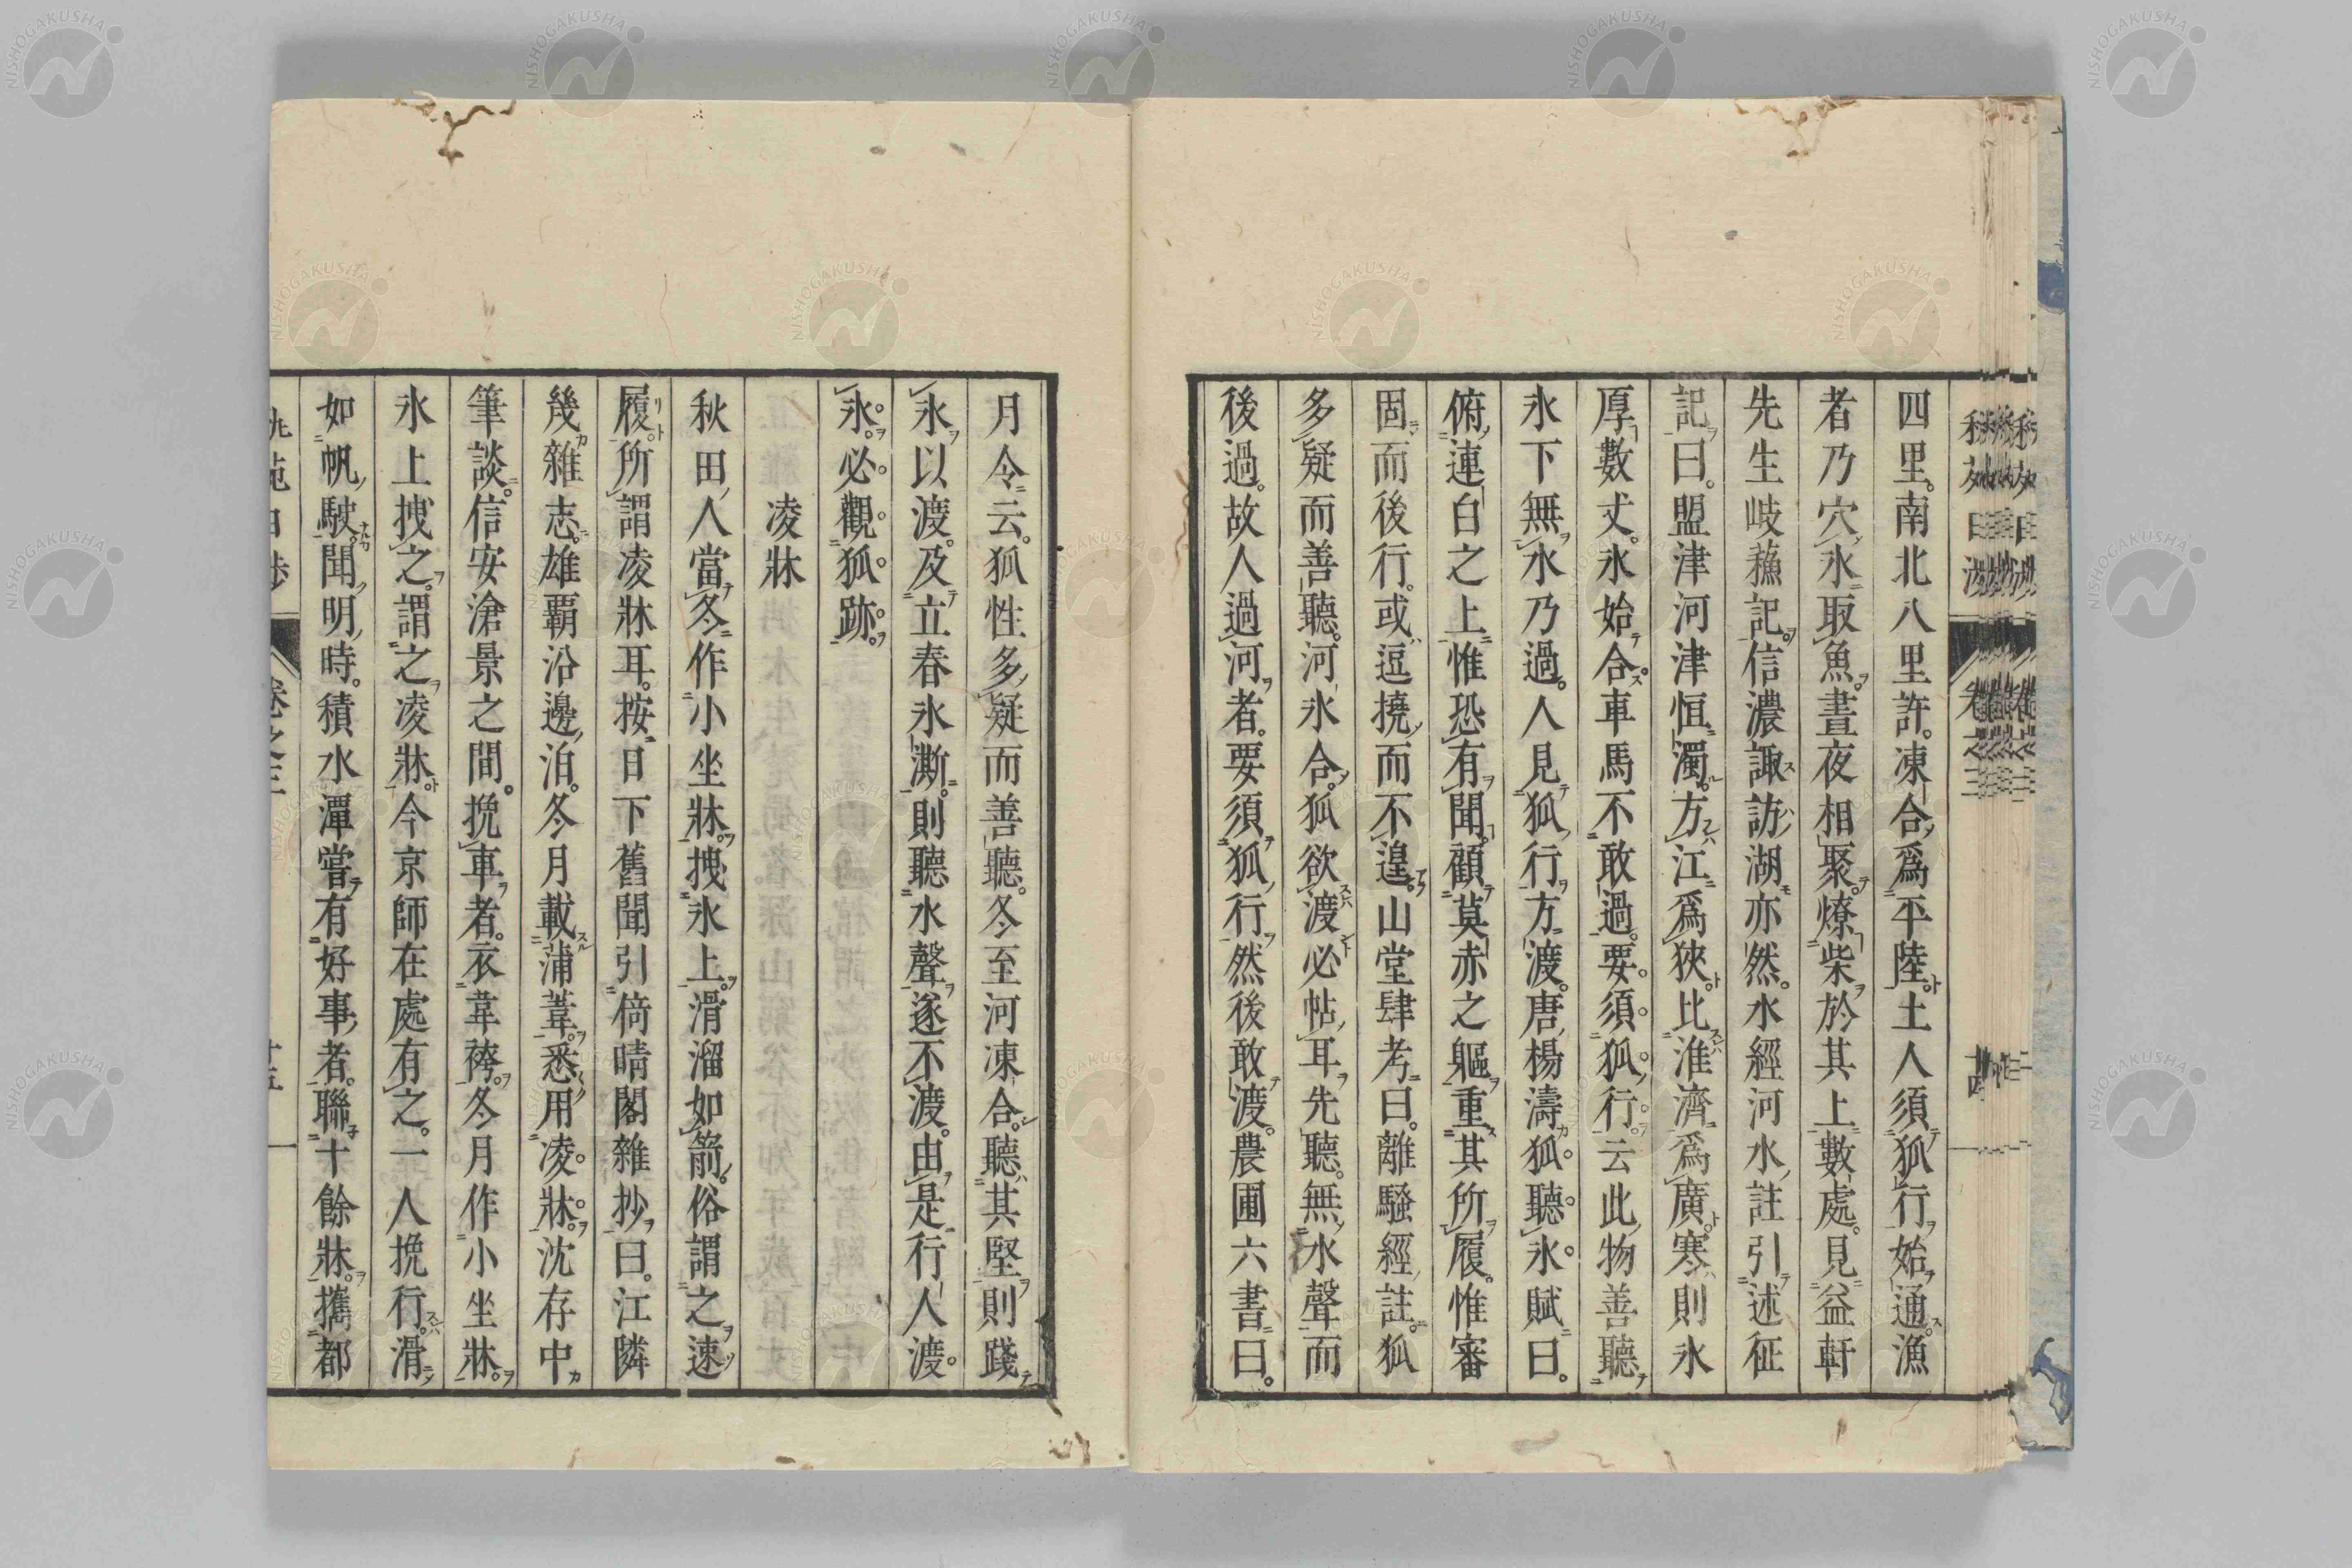 四里。南北八里許。凍合爲平陸。土人須狐行始通。漁
者乃穴氷取魚。晝夜相聚。燎柴於其上數處。見益軒
先生岐蘓記。信濃諏訪湖亦然。水經河水註引述征
記曰。盟津河津恒濁。方江爲狹。比淮濟爲廣。寒則氷
厚數丈。氷始合。車馬不敢過。要須狐行。云此物善聽
氷下無水乃過。人見狐行方渡。唐楊濤狐聽氷賦曰。
俯連白之上。惟恐有聞。顧莫赤之軀。重其所履。惟審
固而後行。或逗撓而不遑。山堂肆考曰。離騷經註。狐
多疑而善聽。河氷合。狐欲渡必帖耳先聽。無水聲而
後過。故人過河者。要須狐行然後敢渡。農圃六書曰。
月令云。狐性多疑而善聽。冬至河凍合。聽其堅則踐
氷以渡。及立春氷澌。則聽水聲遂不渡。由是行人渡
氷。必觀狐跡。
凌牀
秋田人當冬作小坐牀。拽氷上。滑溜如箭。俗謂之速
履。所謂凌牀耳。按日下舊聞引倚晴閣雜抄曰。江隣
幾雜志。雄覇沿邊泊。冬月載蒲葦。悉用凌牀。沈存中
筆談。信安滄景之間。挽車者。衣韋袴。冬月作小坐牀。
氷上拽之。謂之凌牀。今京師在處有之。一人挽行。滑
如帆駛。聞明時。積水潭嘗有好事者。聯十餘牀。攜都